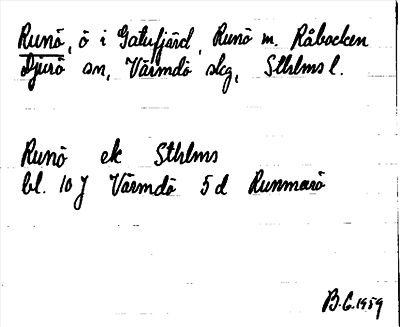 Runö, ö i Gatufjärd, Runö m. Råbocken
Djurö sn, Värmdö skg, Sthlms l.
Runö ek Sthlms
bl. 10 J Värmdö 5 d Runmarö
B.G. 1959